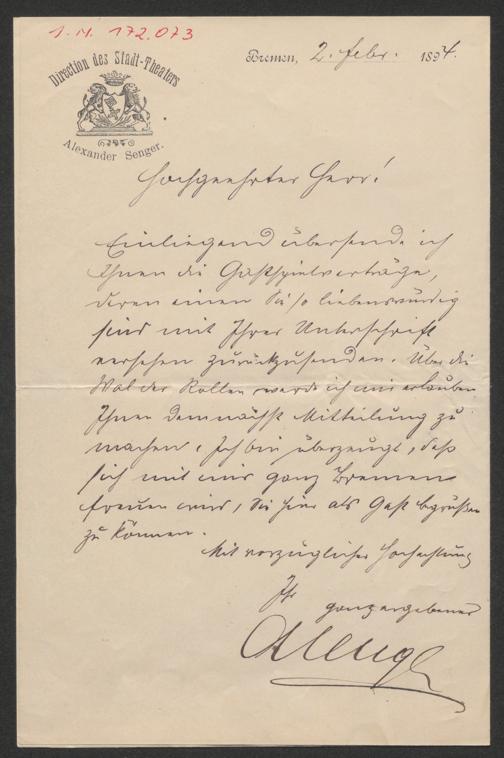 I. N. 172.073
Direction des Stadt-Theaters
Alexander Senger.
Bremen, 2. Febr. 1894.
Hochgeehrter Herr!
Einliegend übersende ich
Ihnen die Gastspielverträge,
deren einen Sie so liebenswürdig
sind mit Ihrer Unterschrift
versehen zurückzusenden. Über die
Wal der Rollen werde ich mir erlauben
Ihnen demnächst Mitteilung zu
machen. Ich bin überzeugt, daß
sich mit mir ganz Bremen
freuen wird, Sie hier als Gast begrüßen
zu können.
Mit vorzüglicher Hochachtung
Ihr
ganz ergebener
ASenger